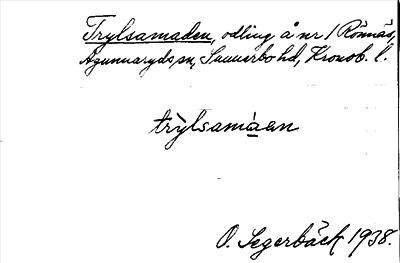 Trylsamaden, odling å nr 1 Rönnäs,
Agunnaryds sn, Sunnerbo hd, Kronob. l.
trỳlsamàan
O. Segerbäck 1938.